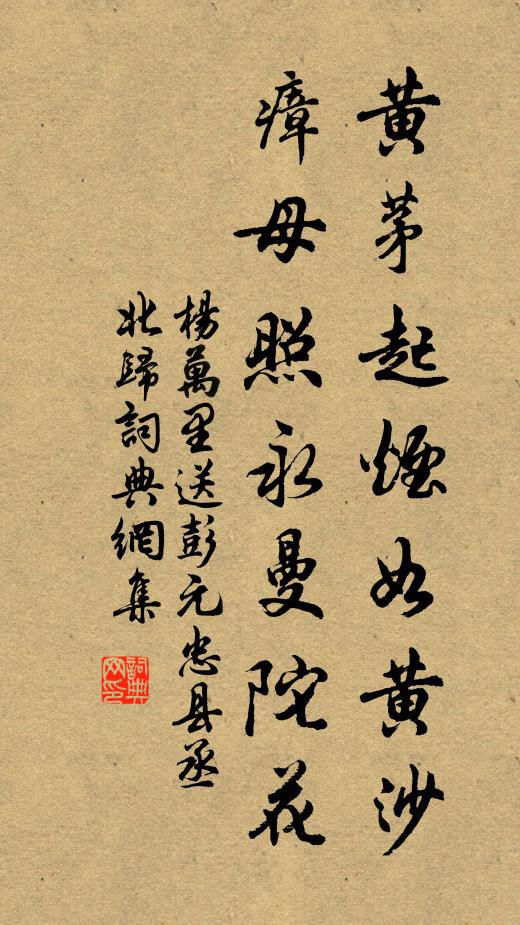 黃茅起煙如黃沙
瘴母照永曼陀花
楊萬里送彭元忠县丞
北歸詞典網集
詞典網印